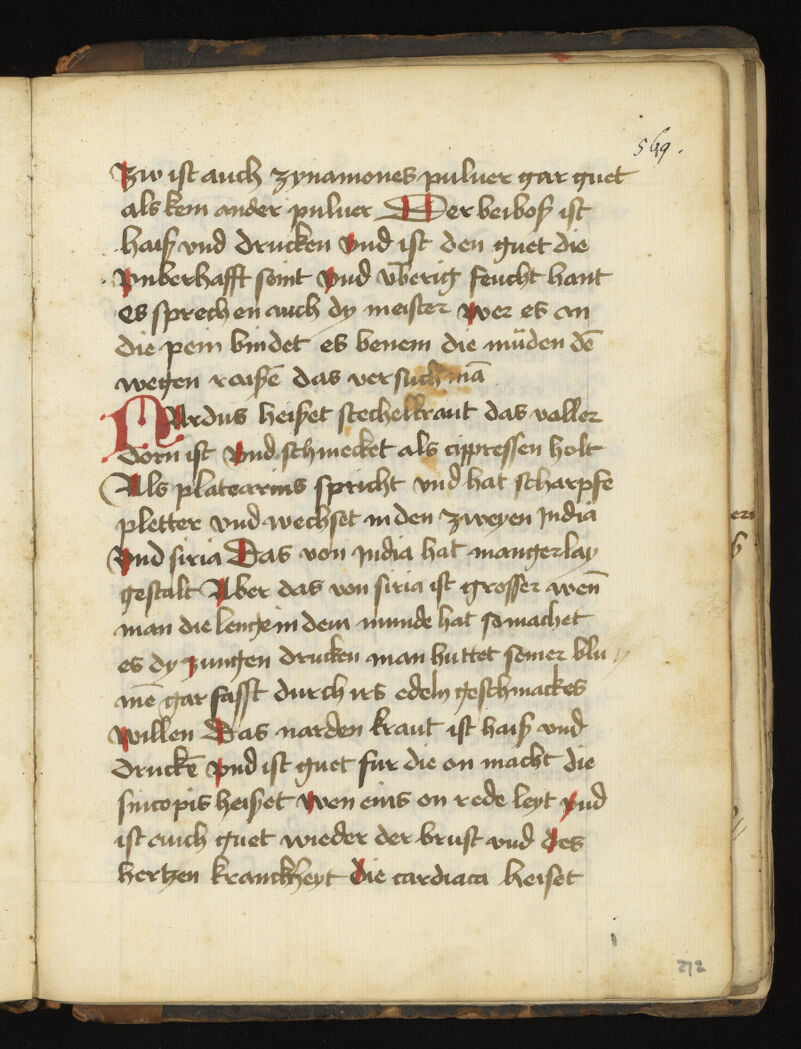 569.
zw ist auch zynamones puluer gar guet
als kein ander puluer Der beibos ist
hais vnd drucken vnd ist den guet die
vnberhafft seint vnd vberig feucht hant
es sprechen auch dy meister wer es an
die pein bindet es benem die müden dē
wegen raisē das versuch mā
Nardus heiset stechelkraut das voller
dorn ist vnd schmecket als cippressen holt
Als platearius spricht vnd hat scharpfe
pletter vnd wechset in den zweyen India
vnd siria Das von India hat mangerlay
gestalt Aber das von siria ist grosser wen̄
man die lenge in dem munde hat so machet
es dy zungen drucken man huttet seiner blu
mē gar fasst durch irs edeln geschmackes
willen Das narden kraut ist hais vnd
druckē vnd ist guet fur die on macht die
sincopis heiset wen eins on rede leyt vnd
ist auch guet wieder der brust vnd des
hertzen kranckheyt die cardiaca heiset
272